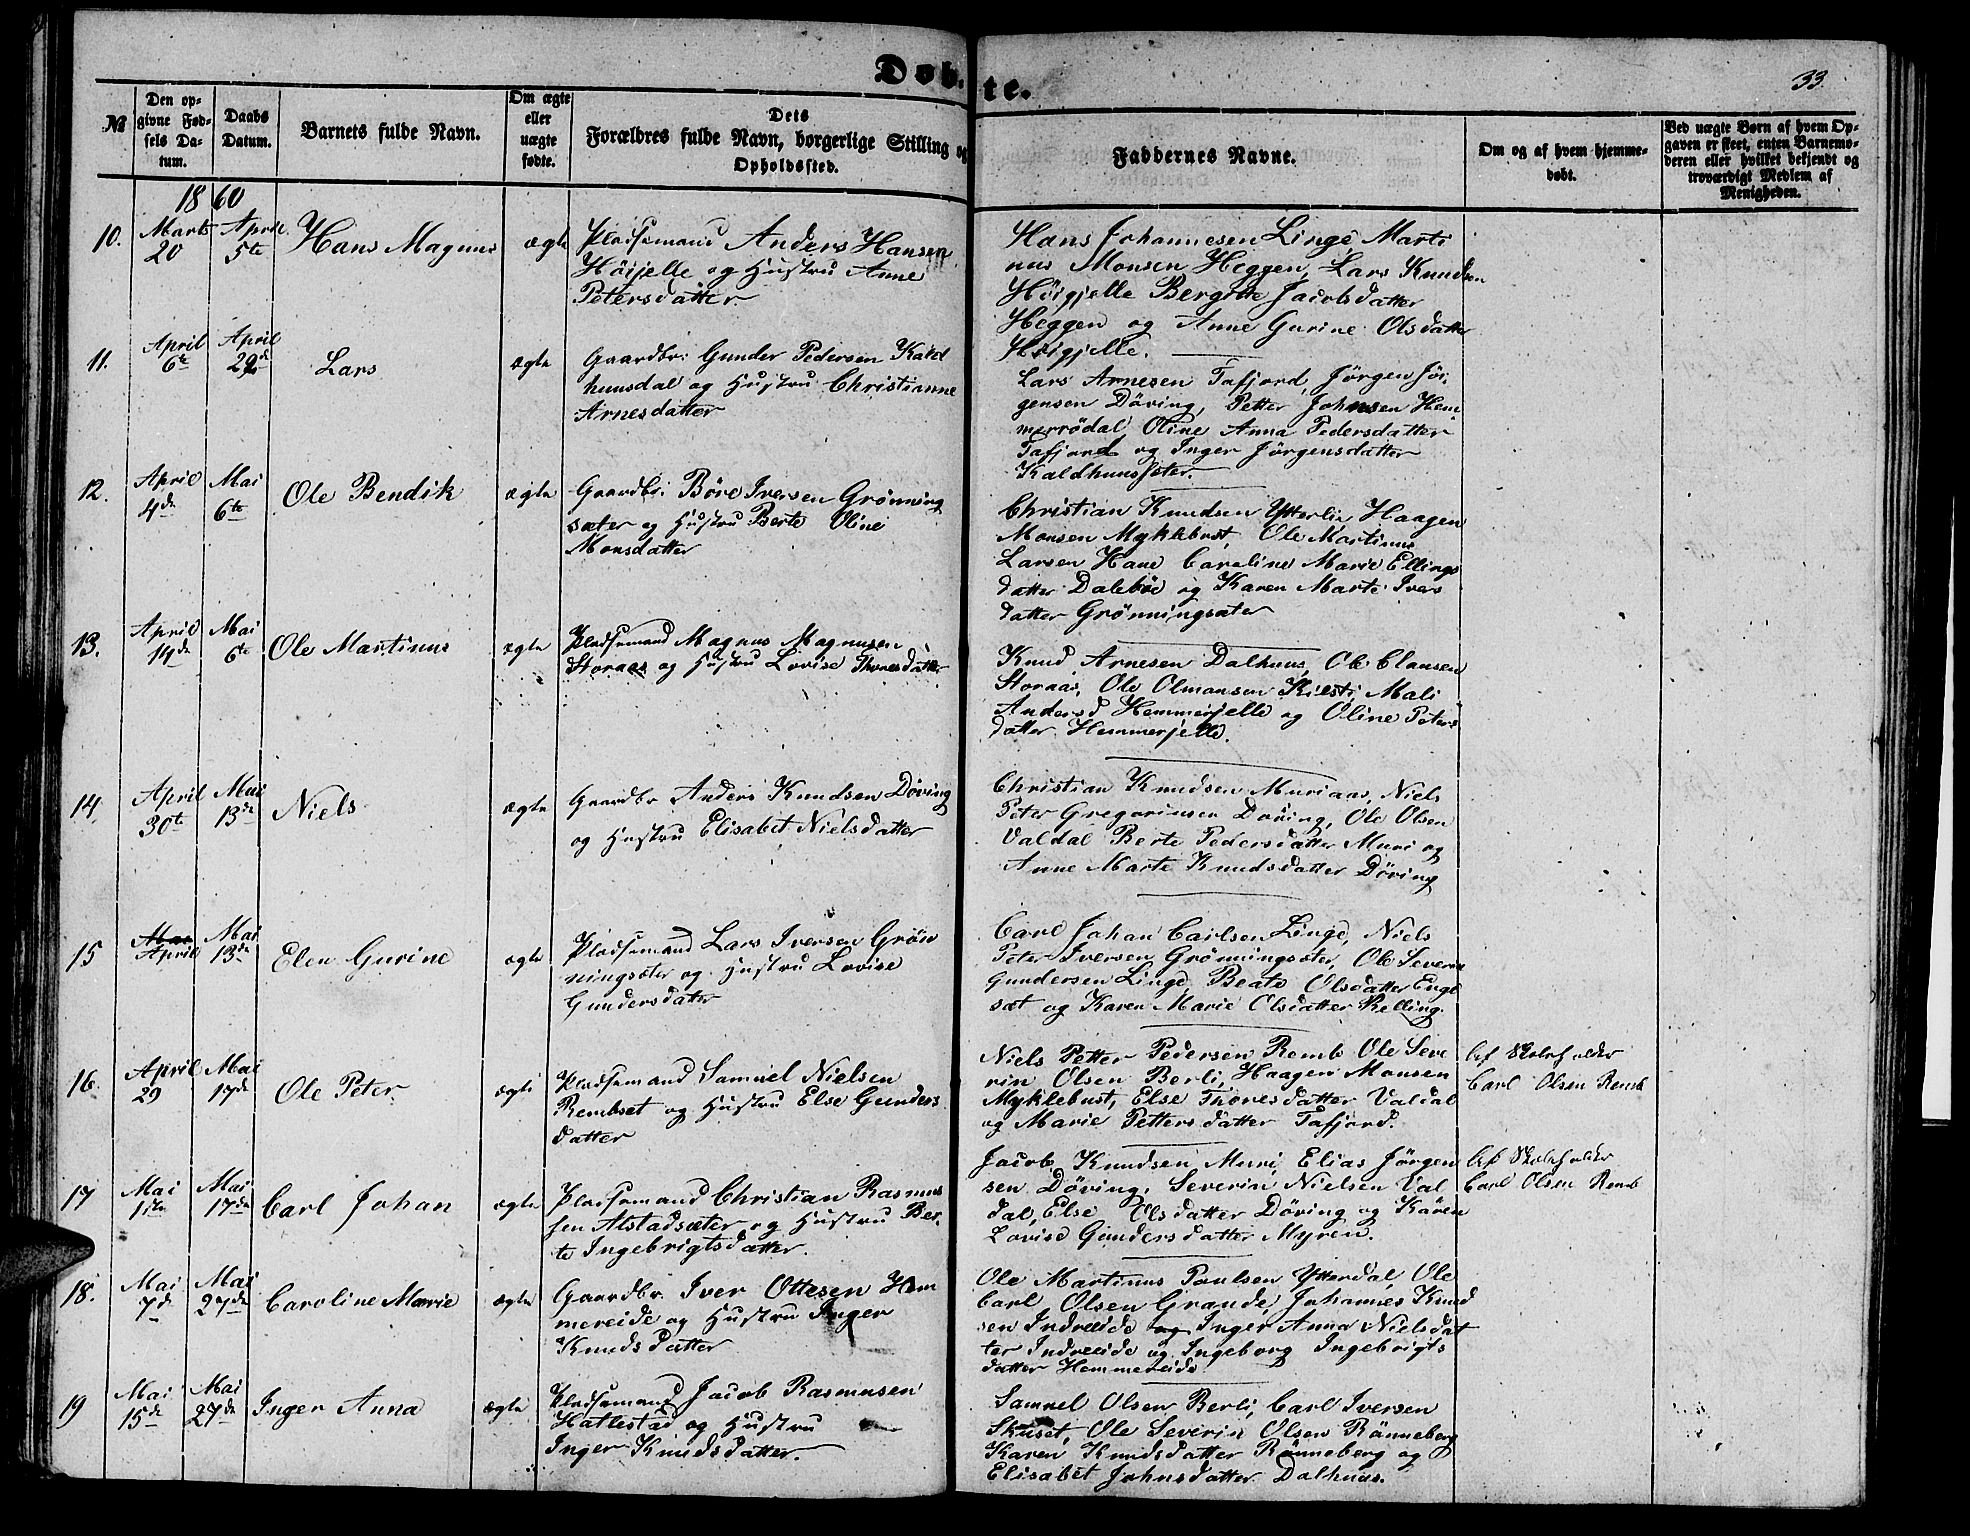 Døbte.
33.
№
Den opgivne Fødsels Datum.
Daabs Datum.
Barnets fulde Navn.
Om ægte eller uægte fødte.
Dets Forældres fulde Navn, borgerlige Stilling og Opholdssted.
Faddernes Navne.
Om og af hvem hjemmedøbt.
Ved uægte Børn af hvem Opgaven er skeet, enten Barnemoderen eller hvilket bekjendt og troværdigt Medlem af Menigheden.
1860
10. Marts 20 April 5te Hans Magnus ægte
Pladsemand Anders Hansen
Høijelle og Hustru Anne
Petersdatter
Hans Johannesen Linge, Marti
nus Monsen Heggen, Lars Knudsen
Høigjelle Bergitte Jacobsdatter
Heggen og Anne Gurine Olsdatter
Høigjelle.
11. April 6te April 29de Lars ægte
Gaardbr: Gunder Pedersen Kald
huusdal og Hustru Christianne
Arnesdatter
Lars Arnesen Tafjord, Jørgen Jør
gensen Døving, Petter Johnsen Hem
merrødal Oline Anna Pedersdatter
Tafjord og Inger Jørgensdatter
Kaldhuussæter.
12. April 4de Mai 6te Ole Bendik ægte
Gaardbr: Børe Iversen Grønning
sæter og Hustru Berte Oline
Monsdatter
Christian Knudsen Ytterlie, Haagen
Monsen Myklebust, Ole Martinus
Larsen Hane Caroline Marie Ellings
datter Dalebøe og Karen Marte Ivers
datter Grønningsæter
13. April 14de Mai 6te Ole Martinus ægte
Pladsemand Magnus Magnusen
Storaas og Hustru Lovise Thoresdatter
Knud Arnesen Dalhuus, Ole Clausen
Storaas, Ole Olmansen Kilsti Mali
Andersd Hemmerjelle og Oline Peters
datter Hemmerjelle.
14. April 30te Mai 13de Niels ægte
Gaardbr Anders Knudsen Døving
og Hustru Elisabet Nielsdatter
Christian Knudsen Muriaas, Niels
Peter Gregoriusen Døving, Ole Olsen
Valdal Berte Pedersdatter Muri og
Anne Marte Knudsdatter Døving
15 Mai April Mai 13de Elen Gurine ægte
Pladsemand Lars Iversen Grøn
ningsæter og Hustru Lovise
Gundersdatter
Carl Johan Carlsen Linge, Niels
Peter Iversen Grønningsæter, Ole Severin
Gundersen Linge, Beate Olsdatter Enge
sæt og Karen Marie Olsdatter Relling.
16. April 29 Mai 17de Ole Peter ægte
Pladsemand Samuel Nielsen
Rembset og Hustru Else Gunders
datter
Niels Petter Pedersen Remb Ole Seve
rin Olsen Berli, Haagen Monsen
Myklebust, Else Thoresdatter Valdal
og Marie Pettersdatter Tafjord.
Af Skoleholder
Carl Olsen Remb
17 Mai 1ste Mai 17de Carl Johan ægte
Pladsemand Christian Rasmus
sen Alstadsæter og Hustru Ber
te Ingebrigtsdatter.
Jacob Knudsen Muri, Elias Jørgen
sen Døving, Severin Nielsen Val
dal, Else Olsdatter Døving og Karen
Lovise Gundersdatter Myren.
Af Skoleholder
Carl Olsen Remb
18. Mai 7de Mai 27de Caroline Marie ægte
Gaardbr Iver Ottesen Hem
mereide og Hustru Inger
Knudsdatter
Ole Martinus Poulsen Ytterdal, Ole
Carl Olsen Grande, Johannes Knud
sen Indreeide og Inger Anna Nielsdat
ter Indreeide og Ingeborg Ingebrigts
datter Hemmereide
19 Mai 15de Mai 27de Inger Anna ægte
Pladsemand Jacob Rasmusen
Hattestad og Hustru
Inger Knudsdatter.
Samuel Olsen Berli, Carl Iversen
Skuset, Ole Severin Olsen Rønneberg
Karen Knudsdatter Rønneberg og
Elisabet Johnsdatter Dalhuus.